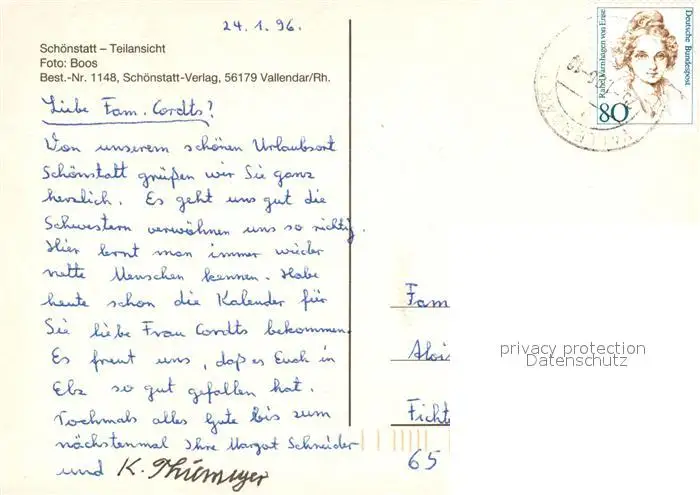 24.1.96.
Schönstatt – Teilansicht
Foto: Boos
Best.-Nr. 1148, Schönstatt-Verlag, 56179 Vallendar/Rh.
Liebe Fam. Cordts!
Von unserem schönen Urlaubsort
Schönstatt grüßen wir Sie ganz
herzlich. Es geht uns gut die
Schwestern verwöhnen uns so richtig.
Hier lernt man immer wieder
nette Menschen kennen. Habe
heute schon die Kalender für
Sie liebe Frau Cordts bekommen.
Es freut uns, daß es Euch in
so gut gefallen hat.
Nochmals alles Gute bis zum
nächstenmal Ihre Margot Schneider
und K. Thiemeyer
Deutsche Bundespost
Rahel Varnhagen von Ense
80
Fam
Alois
Ficht
65
privacy protection
Datenschutz